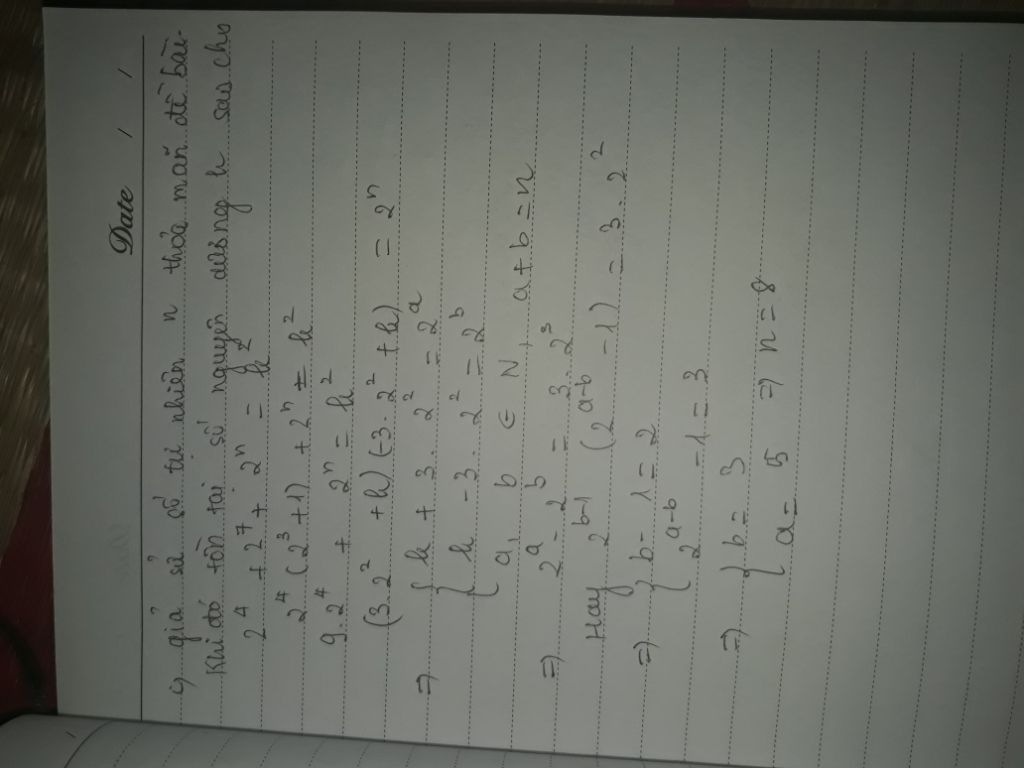 Date / /
9 giả sử số tự nhiên n thỏa mãn đề bài.
Khi đó tồn tại số nguyên dương h sao cho
2⁴ + 2⁷ + 2ⁿ = h²
2⁴ (2³ + 1) + 2ⁿ = h²
9.2⁴ + 2ⁿ = h²
(3.2² + h) (-3.2² + h) = 2ⁿ
⇒ { h + 3.2² = 2ᵃ
{ h - 3.2² = 2ᵇ
a, b ∈ N, a + b = n
⇒ 2ᵃ - 2ᵇ = 3.2³
Hay 2ᵇ⁻¹ (2ᵃ⁻ᵇ - 1) = 3.2²
⇒ { b - 1 = 2
{ 2ᵃ⁻ᵇ - 1 = 3
⇒ { b = 3
{ a = 5 ⇒ n = 8